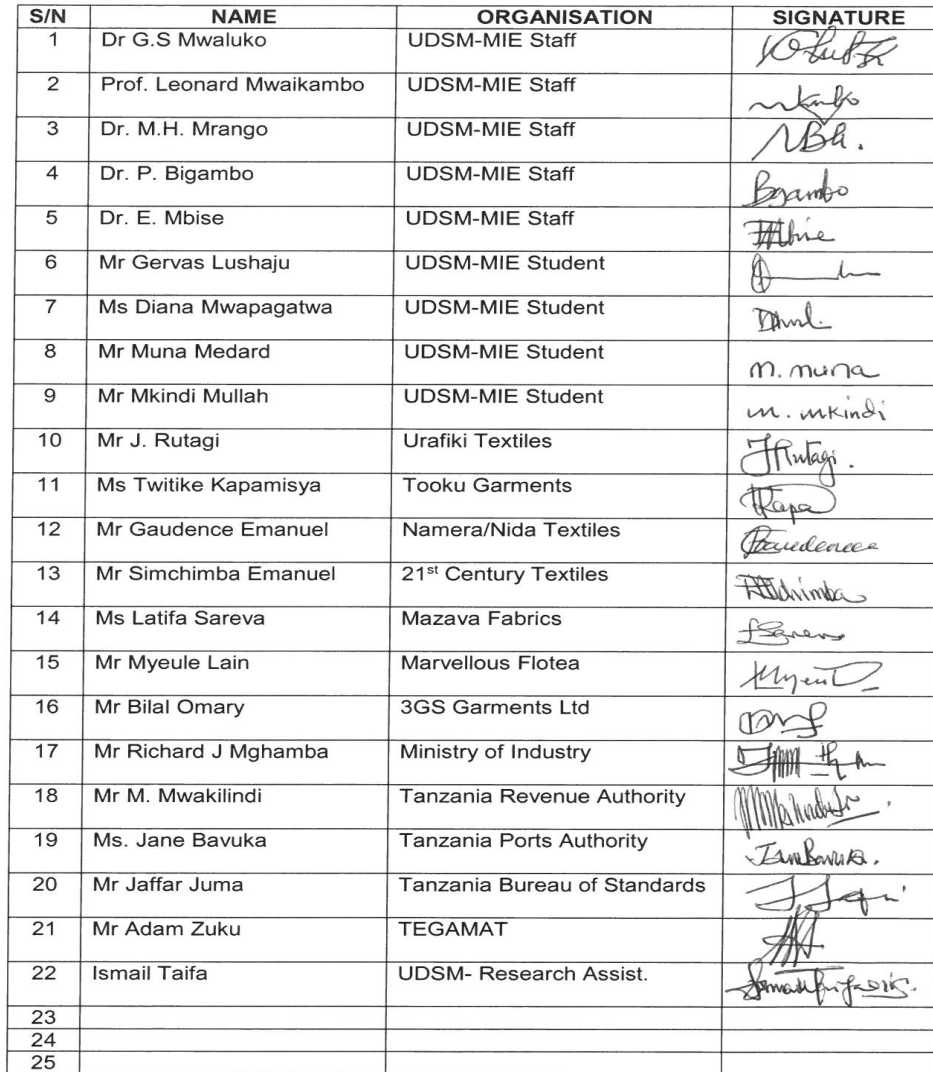 S/N NAME ORGANISATION SIGNATURE
1 Dr G.S Mwaluko UDSM-MIE Staff
2 Prof. Leonard Mwaikambo UDSM-MIE Staff
3 Dr. M.H. Mrango UDSM-MIE Staff
4 Dr. P. Bigambo UDSM-MIE Staff
5 Dr. E. Mbise UDSM-MIE Staff
6 Mr Gervas Lushaju UDSM-MIE Student
7 Ms Diana Mwapagatwa UDSM-MIE Student
8 Mr Muna Medard UDSM-MIE Student m. muna
9 Mr Mkindi Mullah UDSM-MIE Student m. mkindi
10 Mr J. Rutagi Urafiki Textiles
11 Ms Twitike Kapamisya Tooku Garments
12 Mr Gaudence Emanuel Namera/Nida Textiles
13 Mr Simchimba Emanuel 21st Century Textiles
14 Ms Latifa Sareva Mazava Fabrics
15 Mr Myeule Lain Marvellous Flotea
16 Mr Bilal Omary 3GS Garments Ltd
17 Mr Richard J Mghamba Ministry of Industry
18 Mr M. Mwakilindi Tanzania Revenue Authority
19 Ms. Jane Bavuka Tanzania Ports Authority
20 Mr Jaffar Juma Tanzania Bureau of Standards
21 Mr Adam Zuku TEGAMAT
22 Ismail Taifa UDSM- Research Assist.
23
24
25